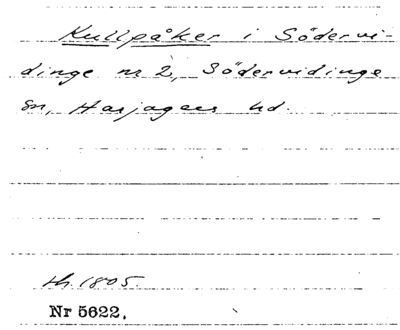 Kullpåker i Södervi-
dinge nr 2, Södervidinge
sn, Harjagers hd.
th. 1805.
Nr 5622,